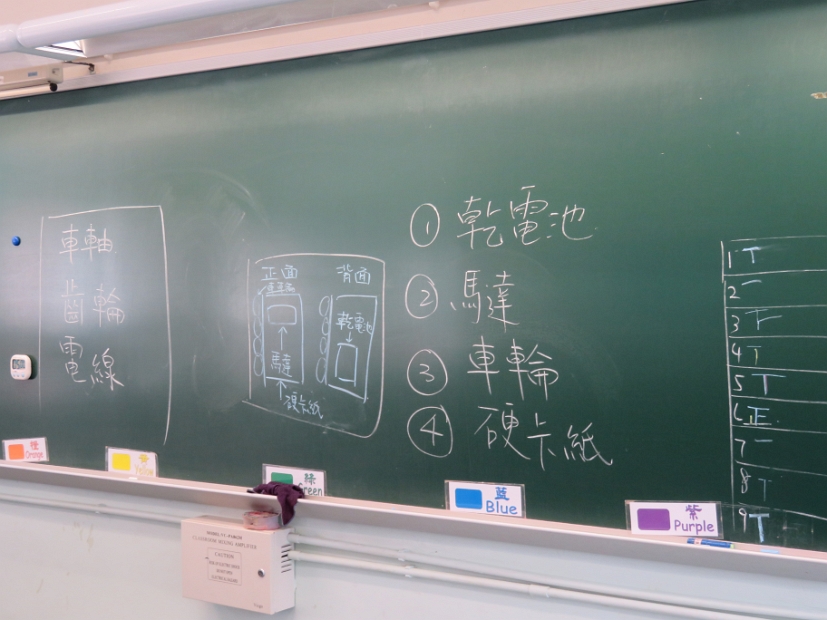 車軸
齒輪
電線
正面
背面
乾電池
馬達
硬卡紙
① 乾電池
② 馬達
③ 車輪
④ 硬卡紙
1 T
2 一
3 T
4 T
5 T
6 正
7 一
8 T
9 T
橙
Orange
綠
Green
藍
Blue
紫
Purple
CAUTION